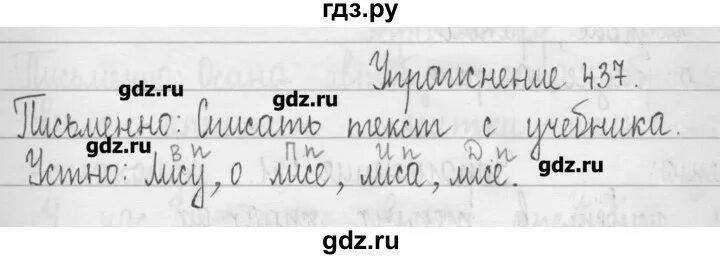 гдз.ру
Упражнение 437.
gdz.ru gdz.ru
Письменно: Списать текст с учебника.
В п П п И п Д п
Устно: лису, о лисе, лиса, лисе.
gdz.ru gdz.ru gdz.ru
gdz.ru gdz.ru